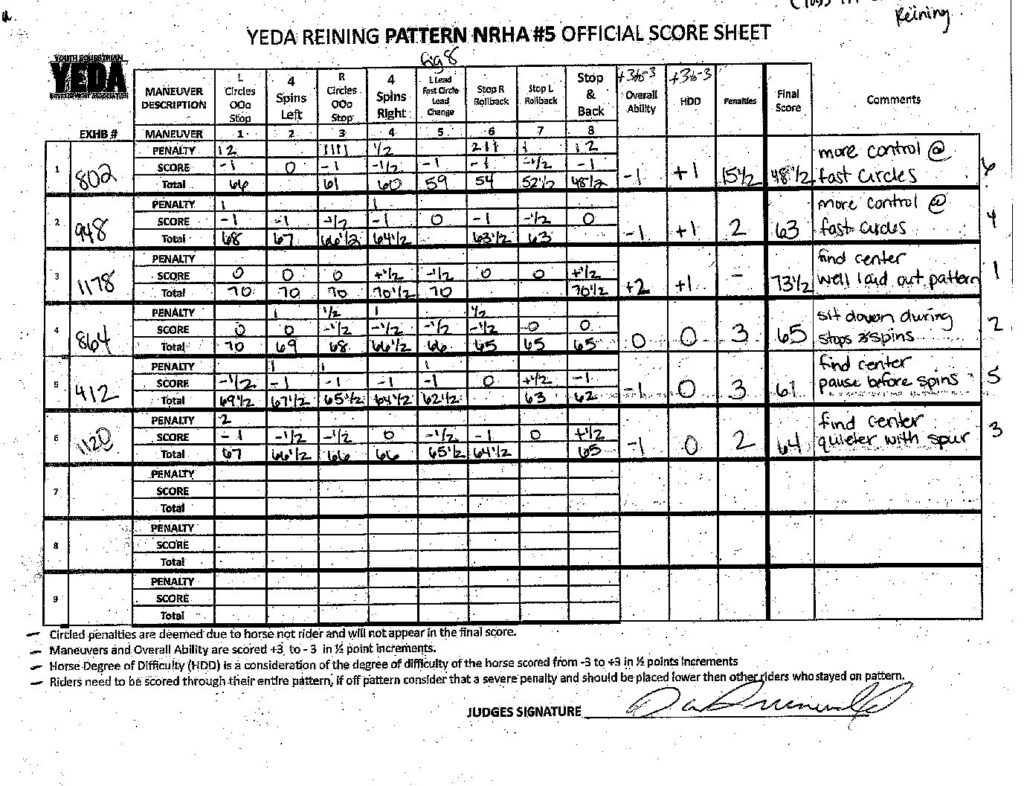 Reining
YEDA REINING PATTERN NRHA #5 OFFICIAL SCORE SHEET
Fig 8
YOUTH EQUESTRIAN
YEDA
DEVELOPMENT ASSOCIATION
EXHB # MANEUVER DESCRIPTION L Circles OOo Stop 4 Spins Left R Circles OOo Stop 4 Spins Right L Lead Fast Circle Lead Change Stop R Rollback Stop L Rollback Stop & Back +3to-3 Overall Ability +3to-3 HDD Penalties Final Score Comments
MANEUVER 1 2 3 4 5 6 7 8
1 802 -1 +1 15½ 48½ more control @ fast circles 6
PENALTY 12 1111 ½ 211 1 12
SCORE -1 0 -1 -1½ -1 -1 -½ -1
Total 66 61 60 59 54 52½ 48½
2 948 -1 +1 2 63 more control @ fast circles 4
PENALTY 1 1
SCORE -1 -1 -½ -1 0 -1 -½ 0
Total 68 67 66½ 64½ 63½ 63
3 1178 +2 +1 - 73½ find center well laid out pattern 1
PENALTY
SCORE 0 0 0 +½ -½ 0 0 +½
Total 70 70 70 70½ 70 70½
4 864 0 0 3 65 sit down during stops & spins 2
PENALTY 1 ½ 1 ½
SCORE 0 0 -½ -½ -½ -½ 0 0
Total 70 69 68 66½ 66 65 65 65
5 412 -1 0 3 61 find center pause before spins 5
PENALTY 1 1 1
SCORE -½ -1 -1 -1 -1 0 +½ -1
Total 69½ 67½ 65½ 64½ 62½ 63 62
6 1120 -1 0 2 64 find center quieter with spur 3
PENALTY 2
SCORE -1 -½ -½ 0 -½ -1 0 +½
Total 67 66½ 66 66 65½ 64½ 65
7
PENALTY
SCORE
Total
8
PENALTY
SCORE
Total
9
PENALTY
SCORE
Total
— Circled penalties are deemed due to horse not rider and will not appear in the final score.
— Maneuvers and Overall Ability are scored +3 to - 3 in ½ point increments.
— Horse Degree of Difficulty (HDD) is a consideration of the degree of difficulty of the horse scored from -3 to +3 in ½ points increments
— Riders need to be scored through their entire pattern, if off pattern consider that a severe penalty and should be placed lower then other riders who stayed on pattern.
JUDGES SIGNATURE